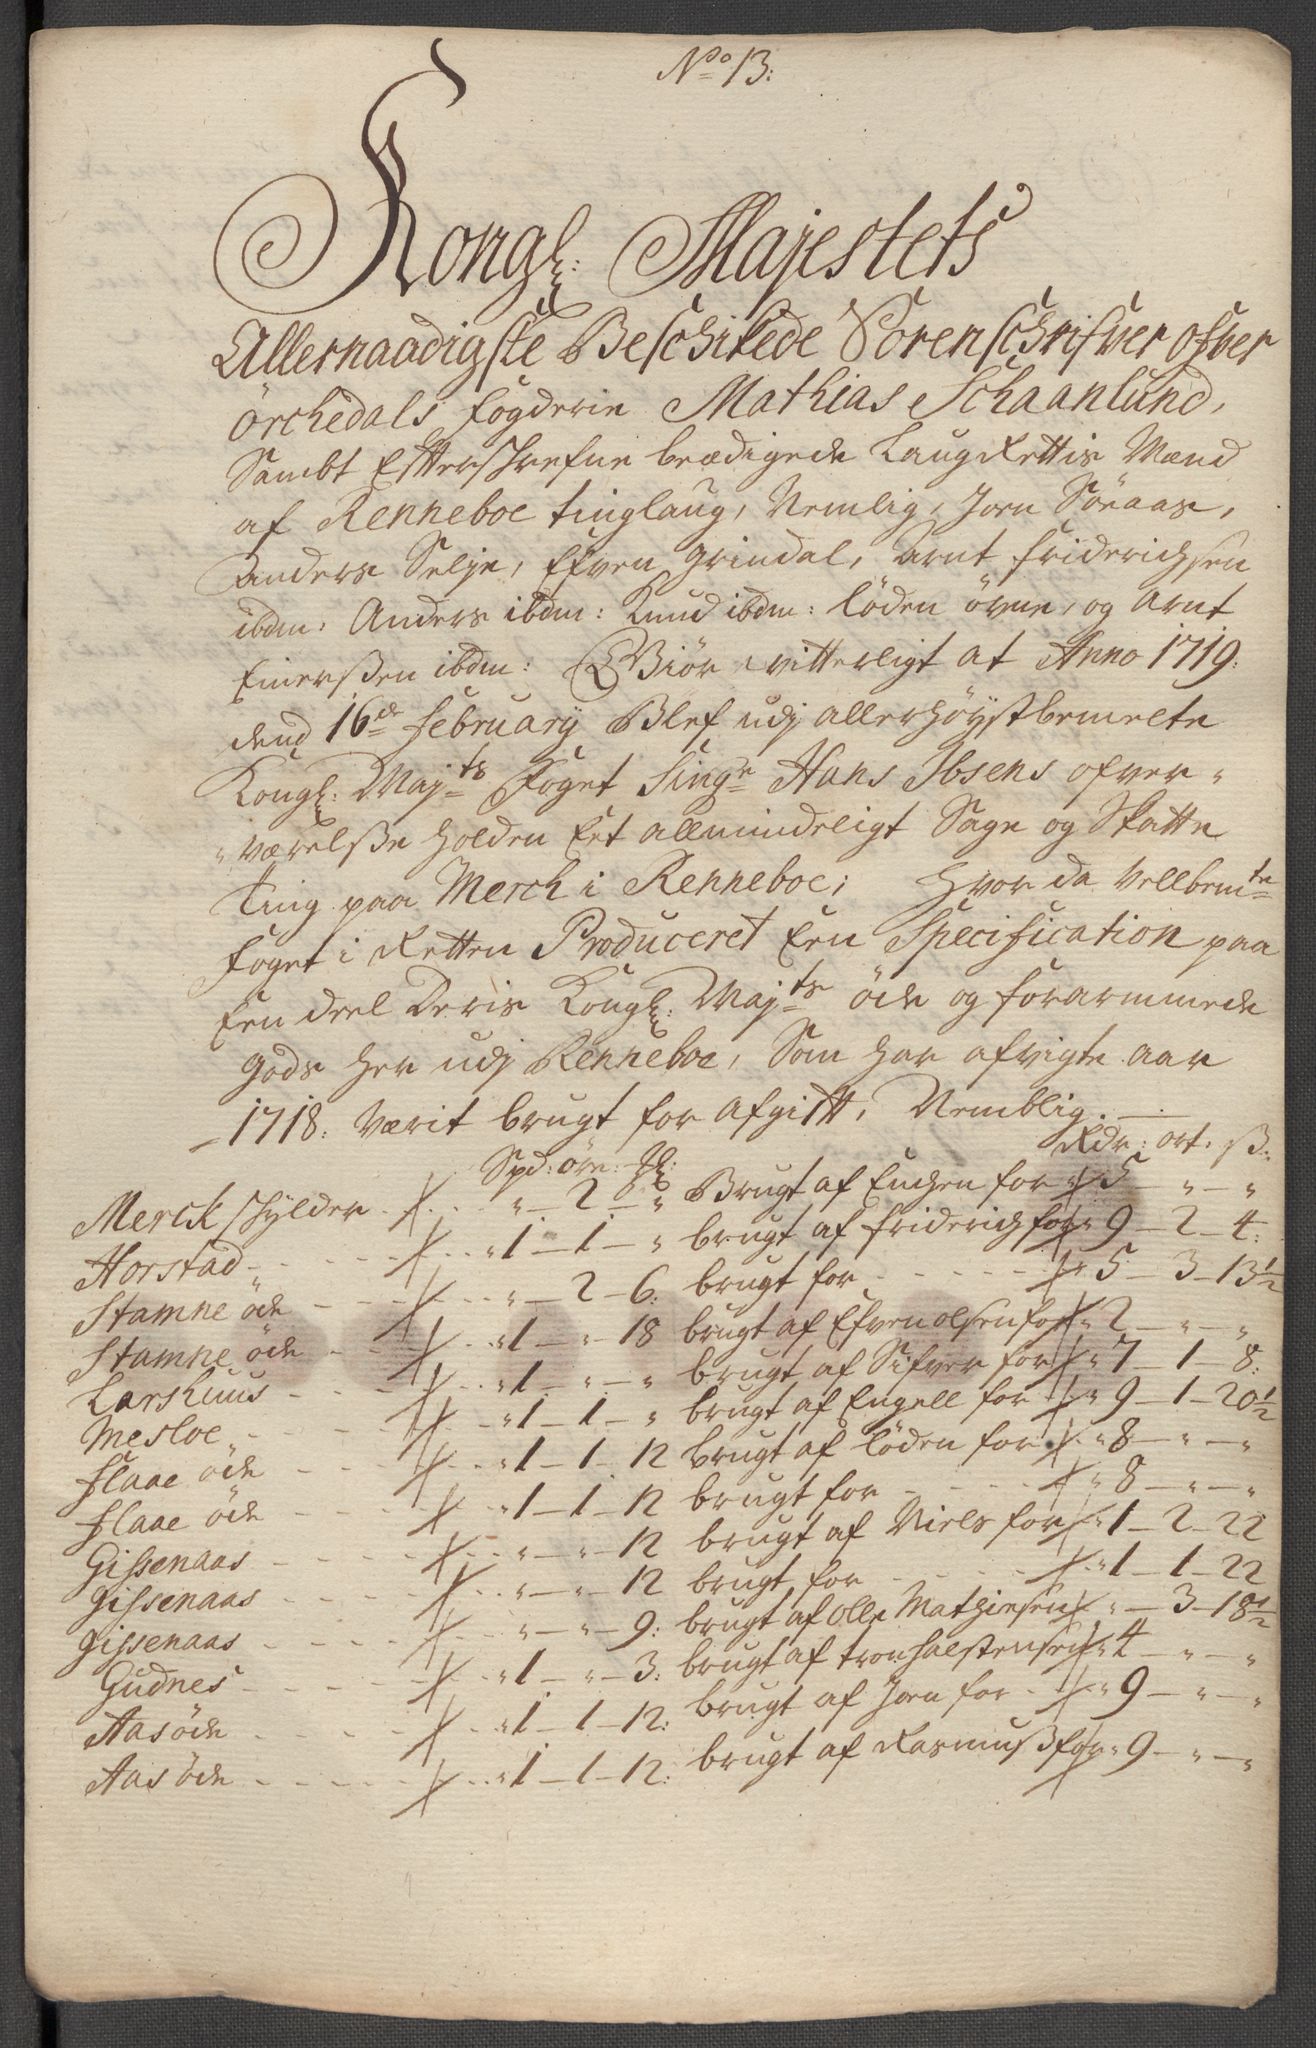 No 13:
Kongl: Majestets
Allernaadigste Beschikede Sorenschrifver ofver
Örchedals fogderie Mathias Schaanlund,
Sambt Efterschrefne beædigede Laug Rettis Mænd
af Renneboe tinglaug, Nemlig, Joen Söraas,
Anders Selje, Efven Grindal, Arnt friderichsen
ibdm, Anders ibdm: Knud ibdm: löden övne, og Arnt
Einersßen ibdm: Giör vitterligt at Anno 1719:
dend 16de February Blef udj allerhöystbemelte
Kongl: Majts Foget Singr Hans Ibsens ofver-
værelsße holden Eet allmindeligt Sage og Skatte
Ting paa Merck i Renneboe; hvor da Vellbemte
foget i Retten Produceret Een Specification paa
Een deel Deris Kongl: Majts öde og forarmmede
gods her udj Renneboe, Som har afvigte aar
1718: Værit brugt for afgift, Nemblig.
Spd: öre: Rdr: ort. ß:
Merck schylder " 2 " Brugt af Euchen for 5 " "
Horstad 1 1 " brugt af friderich for 9 2 4:
Stamne öde " 2 6: brugt for 5 3 13½
Stamne öde 1 " 18 brugt af Efven olsen for 2 " "
Larshuus 1 " " brugt af Sifver for 7 1 8:
Mesloe 1 1 " brugt af Engell for 9 1 20½
flaae öde 1 1 12 brugt af löden for 8 " "
flaae öde 1 1 12 brugt for 8 " "
Gissenaas " " 12 brugt af Niels for 1 2 22
gissenaas " " 12 brugt for 1 1 22
gissenaas " " 9: brugt af Olle Mathiesen " 3 18½
Gudnes 1 " 3: brugt af tron halstensen 4 " "
Aas öde 1 1 12: brugt af Joen for 9 " "
Aas öde 1 1 12: brugt af Rasmuß for 9 " "